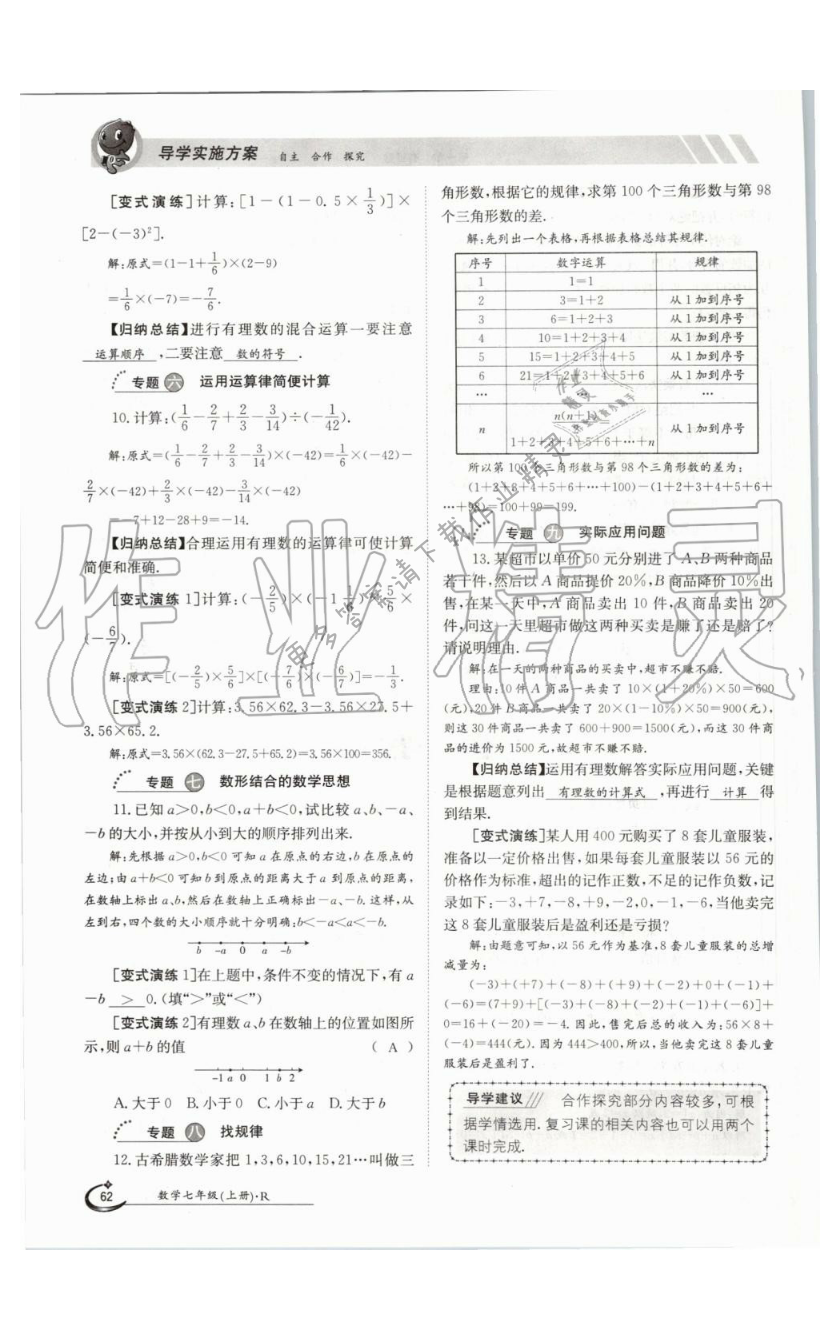 导学实施方案 自主 合作 探究
[变式演练]计算:[1-(1-0.5×1/3)]×
[2-(-3)²].
解:原式=(1-1+1/6)×(2-9)
=1/6×(-7)=-7/6.
【归纳总结】进行有理数的混合运算一要注意
运算顺序,二要注意 数的符号 .
专题 六 运用运算律简便计算
10.计算:(1/6-2/7+2/3-3/14)÷(-1/42).
解:原式=(1/6-2/7+2/3-3/14)×(-42)=1/6×(-42)-
2/7×(-42)+2/3×(-42)-3/14×(-42)
-7+12-28+9=-14.
【归纳总结】合理运用有理数的运算律可使计算
简便和准确.
[变式演练1]计算:(-2/5)×(-1 1/6)×5/6×
(-6/7).
解:原式=[(-2/5)×5/6]×[(-7/6)×(-6/7)]=-1/3.
[变式演练2]计算:3.56×62.3-3.56×27.5+
3.56×65.2.
解:原式=3.56×(62.3-27.5+65.2)=3.56×100=356.
专题 七 数形结合的数学思想
11.已知a>0,b<0,a+b<0,试比较a、b、-a、
-b的大小,并按从小到大的顺序排列出来.
解:先根据a>0,b<0可知a在原点的右边,b在原点的
左边;由a+b<0可知b到原点的距离大于a到原点的距离,
在数轴上标出a、b,然后在数轴上正确标出-a、-b.这样,从
左到右,四个数的大小顺序就十分明确:b<-a<a<-b.
b -a 0 a -b
[变式演练1]在上题中,条件不变的情况下,有a
-b > 0.(填“>”或“<”)
[变式演练2]有理数a、b在数轴上的位置如图所
示,则a+b的值 ( A )
-1 a 0 1 b 2
A.大于0 B.小于0 C.小于a D.大于b
专题 八 找规律
12.古希腊数学家把1,3,6,10,15,21…叫做三
62 数学七年级(上册)·R
角形数,根据它的规律,求第100个三角形数与第98
个三角形数的差.
解:先列出一个表格,再根据表格总结其规律.
序号 数字运算 规律
1 1=1
2 3=1+2 从1加到序号
3 6=1+2+3 从1加到序号
4 10=1+2+3+4 从1加到序号
5 15=1+2+3+4+5 从1加到序号
6 21=1+2+3+4+5+6 从1加到序号
… … …
n n(n+1)/2= 1+2+3+4+5+6+…+n 从1加到序号
所以第100个三角形数与第98个三角形数的差为:
(1+2+3+4+5+6+…+100)-(1+2+3+4+5+6+
…+98)=100+99=199.
专题 九 实际应用问题
13.某超市以单价50元分别进了A、B两种商品
若干件,然后以A商品提价20%,B商品降价10%出
售,在某一天中,A商品卖出10件,B商品卖出20
件,问这一天里超市做这两种买卖是赚了还是赔了?
请说明理由.
解:在一天的两种商品的买卖中,超市不赚不赔.
理由:10件A商品一共卖了10×(1+20%)×50=600
(元),20件B商品一共卖了20×(1-10%)×50=900(元),
则这30件商品一共卖了600+900=1500(元),而这30件商
品的进价为1500元,故超市不赚不赔.
【归纳总结】运用有理数解答实际应用问题,关键
是根据题意列出 有理数的计算式 ,再进行 计算 得
到结果.
[变式演练]某人用400元购买了8套儿童服装,
准备以一定价格出售,如果每套儿童服装以56元的
价格作为标准,超出的记作正数,不足的记作负数,记
录如下:-3,+7,-8,+9,-2,0,-1,-6,当他卖完
这8套儿童服装后是盈利还是亏损?
解:由题意可知,以56元作为基准,8套儿童服装的总增
减量为:
(-3)+(+7)+(-8)+(+9)+(-2)+0+(-1)+
(-6)=(7+9)+[(-3)+(-8)+(-2)+(-1)+(-6)]+
0=16+(-20)=-4.因此,售完后总的收入为:56×8+
(-4)=444(元).因为444>400,所以,当他卖完这8套儿童
服装后是盈利了.
导学建议 合作探究部分内容较多,可根
据学情选用.复习课的相关内容也可以用两个
课时完成.
作业精灵